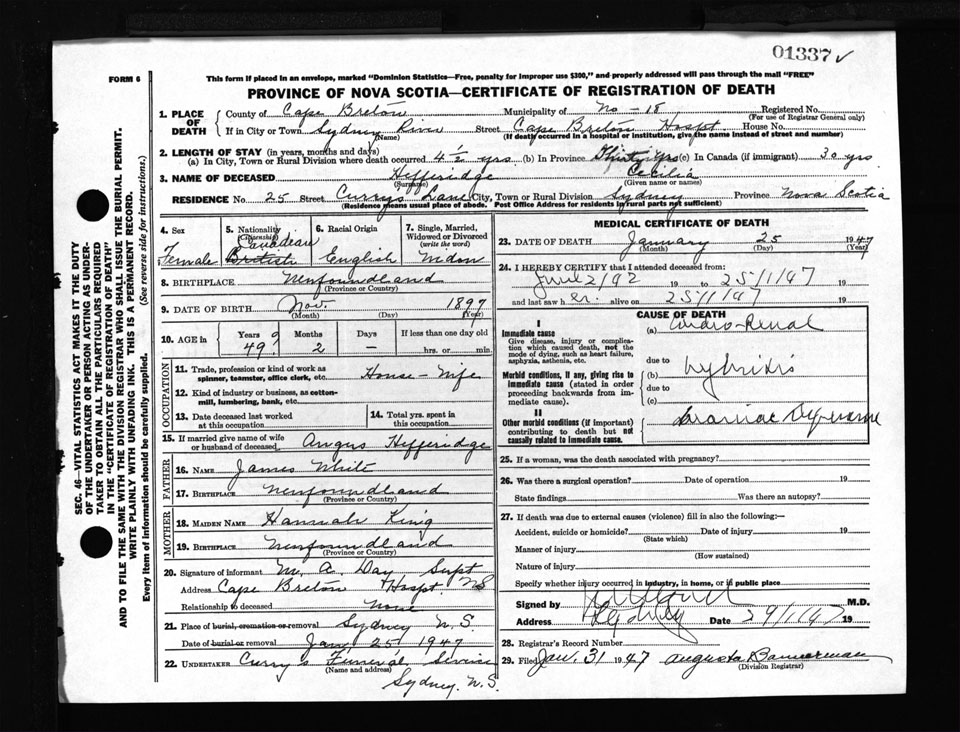 01337 ✓
FORM 6
This form if placed in an envelope, marked "Dominion Statistics—Free, penalty for improper use $300," and properly addressed will pass through the mail "FREE"
PROVINCE OF NOVA SCOTIA—CERTIFICATE OF REGISTRATION OF DEATH
1. PLACE OF DEATH
County of Cape Breton Municipality of No - 18 Registered No.
(For use of Registrar General only)
If in City or Town Sydney River Street Cape Breton Hospt. House No.
(Name) (If death occurred in a hospital or institution, give the name instead of street and number)
2. LENGTH OF STAY (in years, months and days)
(a) In City, Town or Rural Division where death occurred 4 ½ yrs (b) In Province Thirty yrs (c) In Canada (if immigrant) 30 yrs
3. NAME OF DECEASED Hefferidge Cecilia
(Surname) (Given name or names)
RESIDENCE No. 25 Street Currys Lane City, Town or Rural Division Sydney Province Nova Scotia
(Residence means usual place of abode. Post Office Address for residents in rural parts not sufficient)
4. Sex
Female
5. Nationality (Citizenship)
Canadian
British
6. Racial Origin
English
7. Single, Married, Widowed or Divorced (write the word)
8. BIRTHPLACE Newfoundland
(Province or Country)
9. DATE OF BIRTH Nov. 1897
(Month) (Day) (Year)
10. AGE in
Years Months Days If less than one day old
49 ? 2 — hrs. or min.
OCCUPATION
11. Trade, profession or kind of work as spinner, teamster, office clerk, etc. House-Wife
12. Kind of industry or business, as cotton-mill, lumbering, bank, etc.
13. Date deceased last worked at this occupation
14. Total yrs. spent in this occupation
15. If married give name of wife or husband of deceased Angus Hefferidge
FATHER
16. NAME James White
17. BIRTHPLACE Newfoundland
(Province or Country)
MOTHER
18. MAIDEN NAME Hannah King
19. BIRTHPLACE Newfoundland
(Province or Country)
20. Signature of informant M. A. Day Supt
Address Cape Breton Hospt. NS
Relationship to deceased None
21. Place of burial, cremation or removal Sydney N.S.
Date of burial or removal Jan 25 1947
22. UNDERTAKER Curry's Funeral Service
(Name and address)
Sydney. N.S.
MEDICAL CERTIFICATE OF DEATH
23. DATE OF DEATH January 25 1947
(Month) (Day) (Year)
24. I HEREBY CERTIFY that I attended deceased from:
June 2/42 19 to 25/1/47 19
and last saw her alive on 25/1/47 19
CAUSE OF DEATH
I
Immediate cause
Give disease, injury or complication which caused death, not the mode of dying, such as heart failure, asphyxia, asthenia, etc.
(a) Cardio-Renal
due to
Morbid conditions, if any, giving rise to immediate cause (stated in order proceeding backwards from immediate cause).
(b)
due to
(c)
II
Other morbid conditions (if important) contributing to death but not causally related to immediate cause.
25. If a woman, was the death associated with pregnancy?
26. Was there a surgical operation? Date of operation 19
State findings Was there an autopsy?
27. If death was due to external causes (violence) fill in also the following:—
Accident, suicide or homicide? Date of injury 19
(State which)
Manner of injury
(How sustained)
Nature of injury
Specify whether injury occurred in industry, in home, or in public place
Signed by M.D.
Address Sydney Date 29/1/47 19
28. Registrar's Record Number
29. Filed Jan. 31 1947 Augusta Bannerman
(Division Registrar)
SEC. 46—VITAL STATISTICS ACT MAKES IT THE DUTY
OF THE UNDERTAKER OR PERSON ACTING AS UNDER-
TAKER TO OBTAIN ALL THE PARTICULARS REQUIRED
IN THE "CERTIFICATE OF REGISTRATION OF DEATH"
AND TO FILE THE SAME WITH THE DIVISION REGISTRAR WHO SHALL ISSUE THE BURIAL PERMIT.
WRITE PLAINLY WITH UNFADING INK. THIS IS A PERMANENT RECORD.
Every item of information should be carefully supplied. (See reverse side for instructions.)